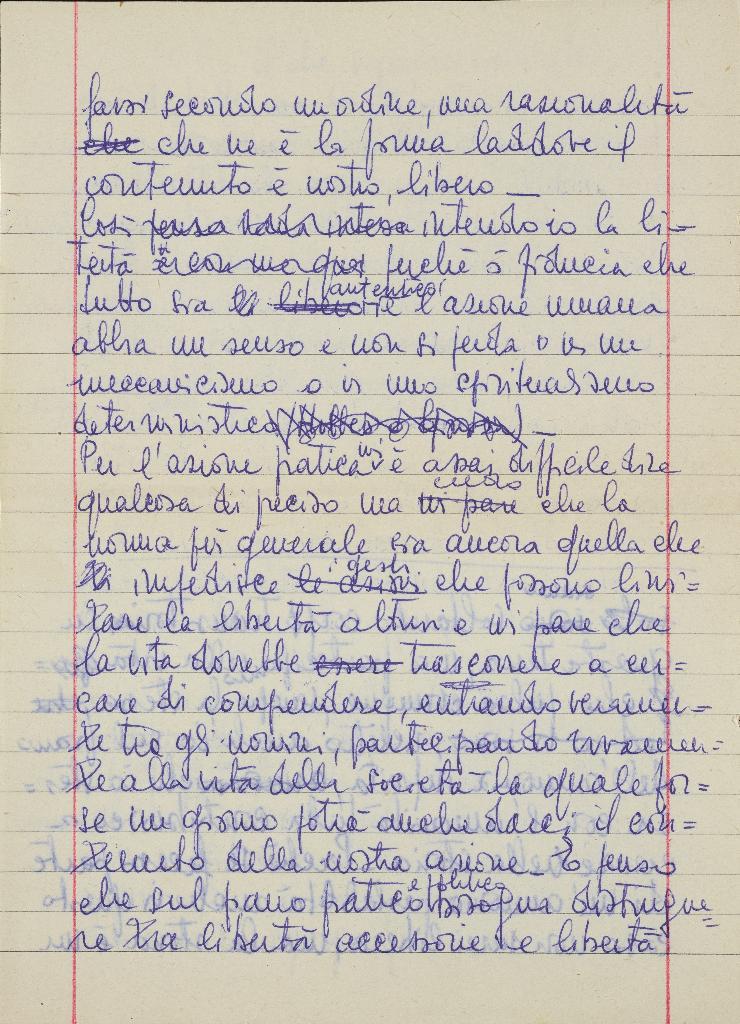 farsi secondo un ordine, una razionalità
che che ne è la forma laddove il
contenuto è nostro, libero —
Così penso intendo io la li=
bertà perché ò fiducia che
tutto sia libero autentico e l'azione umana
abbia un senso e non si perda o in un
meccanicismo o in uno spiritualismo
deterministico —
Per l'azione pratica mi è assai difficile dire
qualcosa di preciso ma mi pare credo che la
norma più generale sia ancora quella che
impedisce le azioni i gesti che possono limi=
tare la libertà altrui e mi pare che
la vita dovrebbe essere trascorrere a cer=
care di comprendere, entrando veramen=
te tra gli uomini, partecipando vivamen=
te alla vita della società la quale for=
se un giorno potrà anche darci il con=
tenuto della nostra azione – Io penso
che sul piano pratico e politico bisogna distingue=
re tra libertà accessorie e libertà